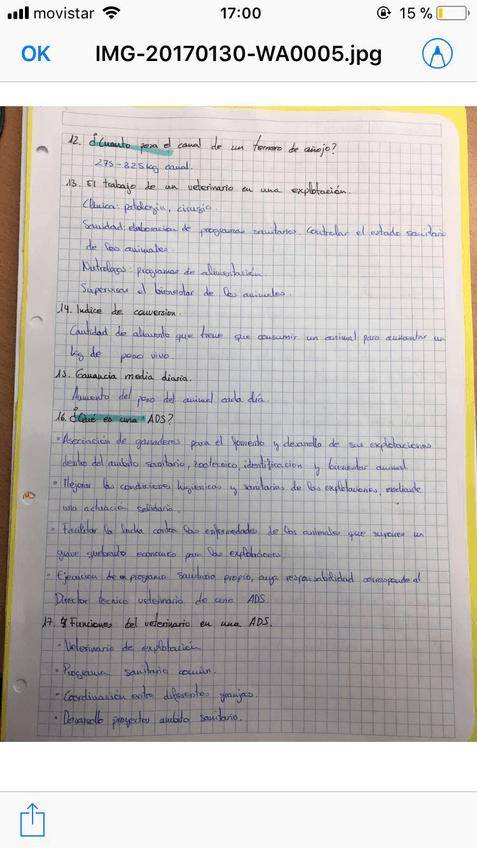 movistar 17:00 15 %
OK IMG-20170130-WA0005.jpg
12. ¿Cuanto pesa el canal de un ternero de añojo?
275-325kg canal.
13. El trabajo de un veterinario en una explotación.
Clínica: patología, cirugía.
Sanidad: elaboracion de programas sanitarios. Controlar el estado sanitario
de los animales.
Nutrologos: programas de alimentación.
Supervisar el bienestar de los animales.
14. Indice de conversion.
Cantidad de alimento que tiene que consumir un animal para aumentar un
kg de peso vivo.
15. Ganancia media diaria.
Aumento del peso del animal cada día.
16. ¿Qué es una ADS?
• Asociación de ganaderos para el fomento y desarollo de sus explotaciones
dentro del ambito sanitario, zootecnico, identificacion y bienestar animal
• Mejorar las condiciones higienicas y sanitarias de las explotaciones, mediante
una actuacion solidaria.
• Facilitar la lucha contra las enfermedades de los animales que suponen un
grave quebranto economico para las explotaciones.
• Ejecucion de programa sanitario propio, cuya responsabilidad corresponde al
Director tecnico veterinario de una ADS.
17. Funciones del veterinario en una ADS.
• Veterinario de explotación
• Programa sanitario común.
• Coordinación entre diferentes granjas.
• Desarrollo proyectos ambito sanitario.